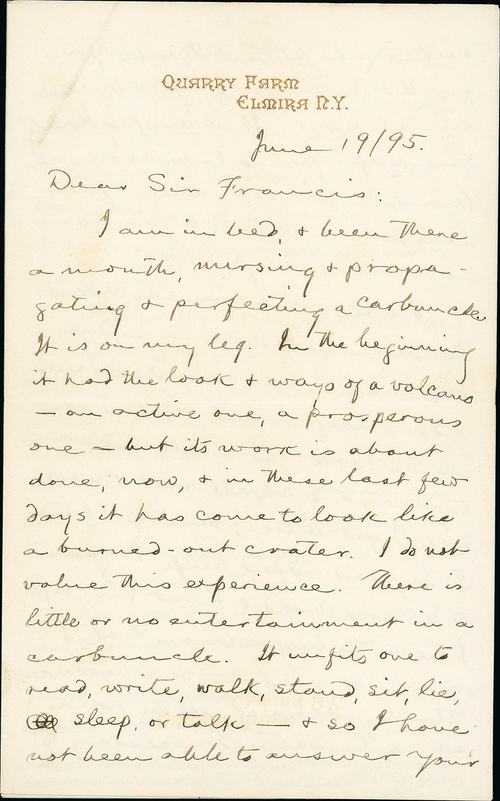 QUARRY FARM
ELMIRA N.Y.
June 19/95.
Dear Sir Francis:
I am in bed, & been there
a month, nursing & propa-
gating & perfecting a carbuncle.
It is on my leg. In the beginning
it had the look & ways of a volcano
— an active one, a prosperous
one — but its work is about
done, now, & in these last few
days it has come to look like
a burned-out crater. I do not
value this experience. There is
little or no entertainment in a
carbuncle. It unfits one to
read, write, walk, stand, sit, lie,
sleep, or talk — & so I have
not been able to answer your